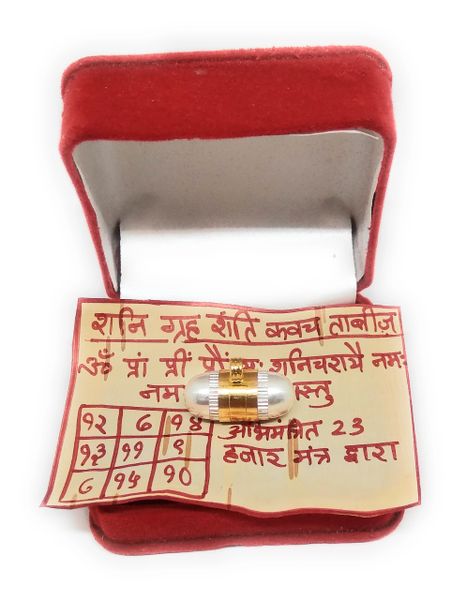 शनि ग्रह शंति कवच ताबीज़
ॐ प्रां प्रीं प्रौं शनिचरायै नमः
नम स्तु
१२ ७ १४
१३ ११ ९
८ १५ १०
अभिमंत्रित 23
हजार मंत्र द्वारा